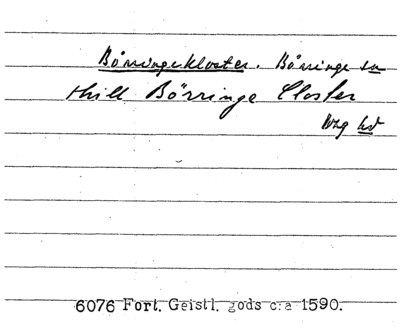 Börringekloster. Börringe sn
thill Börringe Closter
Wzg hd
6076 Fort. Geistl. gods c:a 1590.